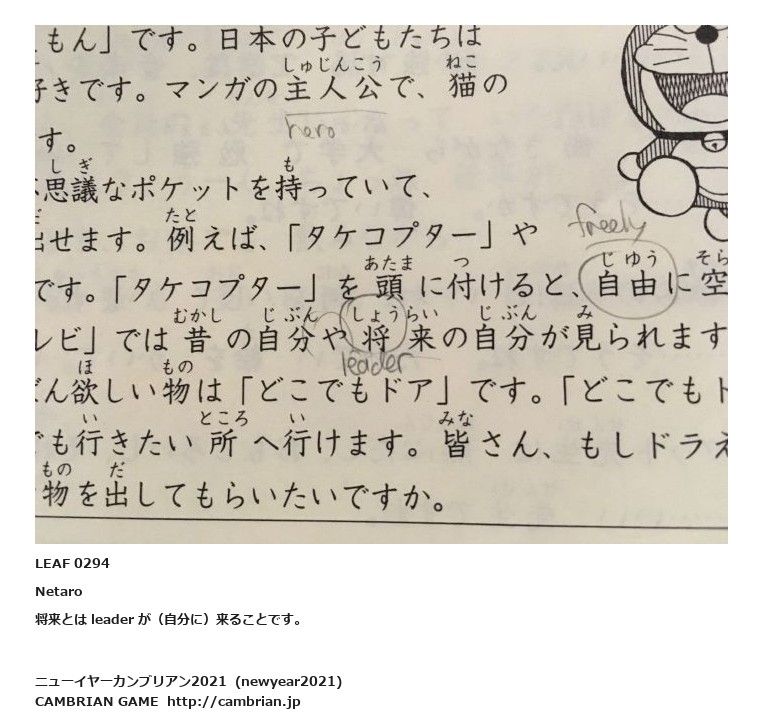 もん」です。日本の子どもたちは
しゅじんこう ねこ
きです。マンガの主人公で、猫の
hero
す。
しぎ も
思議なポケットを持っていて、
たと
せます。例えば、「タケコプター」や
freely
あたま つ じゆう そら
です。「タケコプター」を頭に付けると、自由に空
むかし じぶん しょうらい じぶん み
レビ」では昔の自分や将来の自分が見られます
leader
ほ もの
どん欲しい物は「どこでもドア」です。「どこでもド
い ところ い みな
でも行きたい所へ行けます。皆さん、もしドラえ
もの だ
物を出してもらいたいですか。
LEAF 0294
Netaro
将来とは leader が（自分に）来ることです。
ニューイヤーカンブリアン2021 (newyear2021)
CAMBRIAN GAME http://cambrian.jp